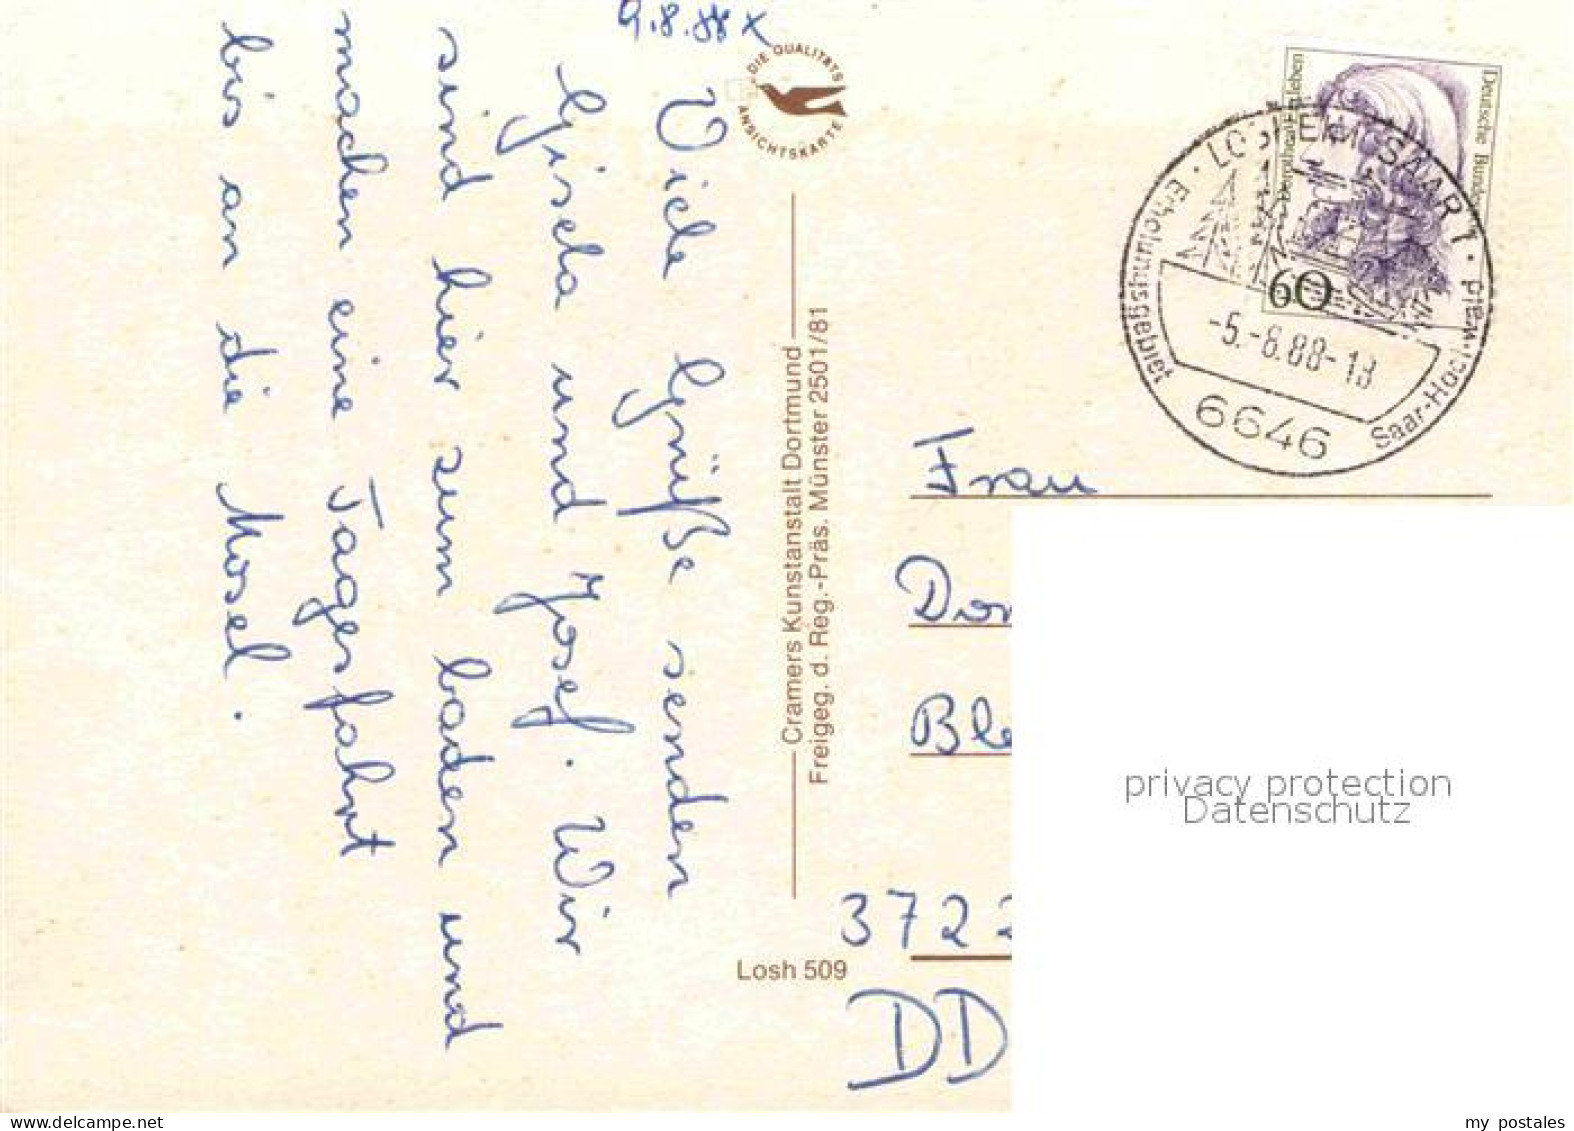 9.8.88 x
Viele Grüße senden
Gisela und Josef. Wir
sind hier zum baden und
machen eine Tagesfahrt
bis an die Mosel.
DIE QUALITÄTS
ANSICHTSKARTE
Cramers Kunstanstalt Dortmund
Freigeg. d. Reg.-Präs. Münster 2501/81
Losh 509
Deutsche Bundes
Dorothea Erxleben
60
LOSHEIM, SAAR 1
Erholungsgebiet
Saar-Hochwald
-5.-8.88-18
6646
Frau
Dor
Ble
3722
DD
privacy protection
Datenschutz
www.delcampe.net
my_postales